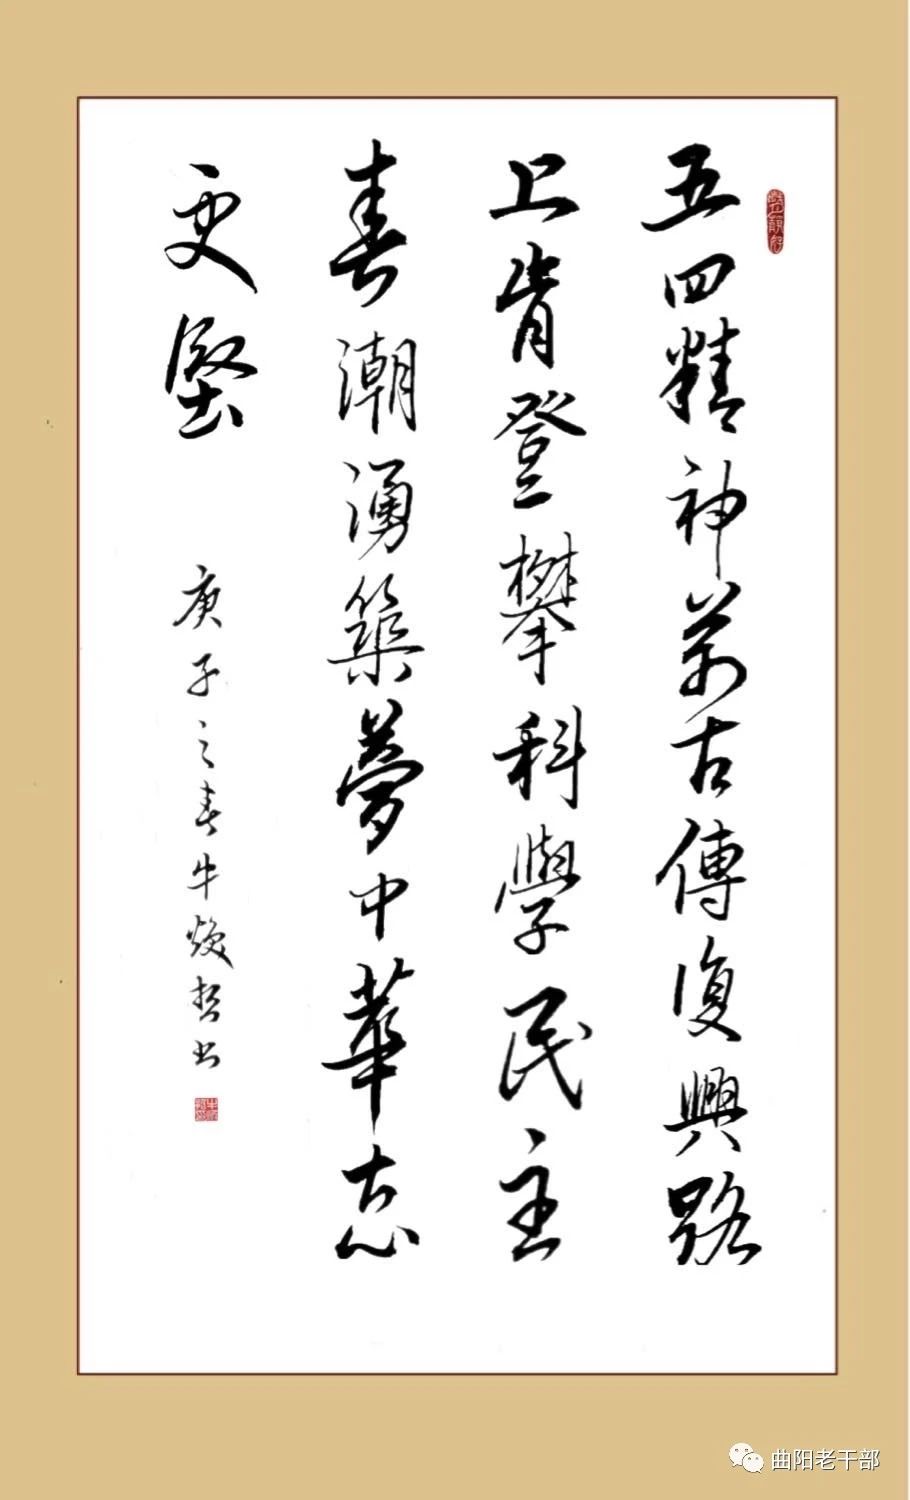 五四精神萬古傳復興路
上肯登攀科學民主
春潮湧築夢中華志
更堅
庚子之春牛焕哲书
曲阳老干部